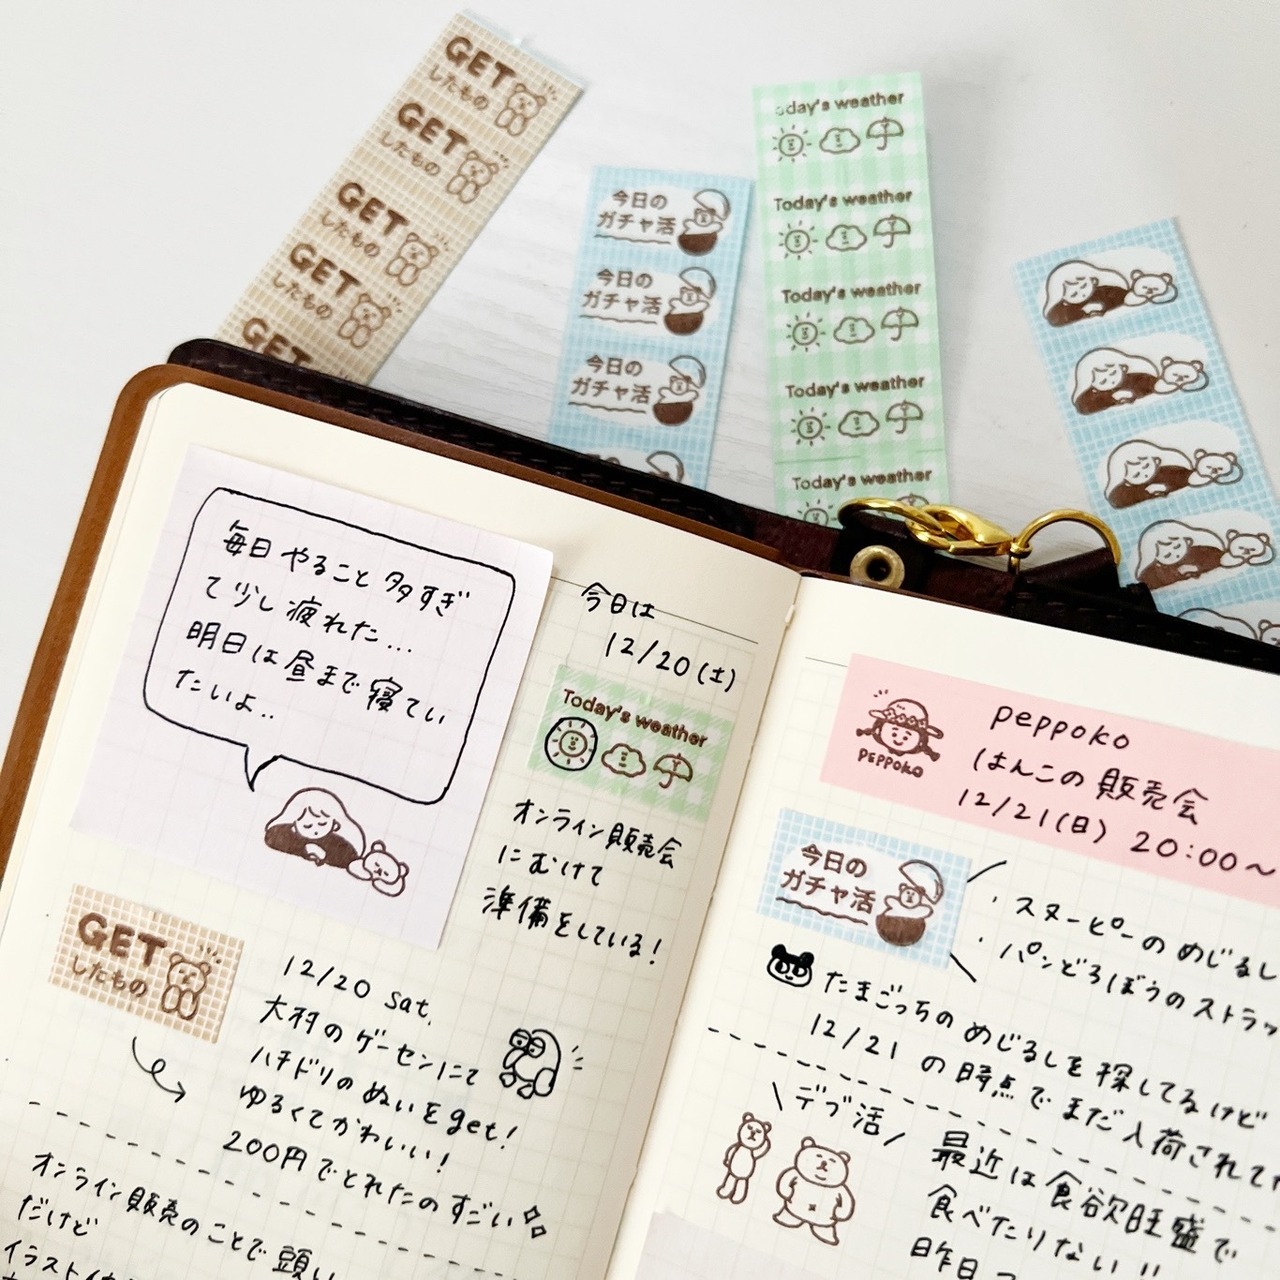 GET
したもの
GET
したもの
GET
したもの
GET
したもの
GET
今日の
ガチャ活
今日の
ガチャ活
今日の
ガチャ活
oday's weather
Today's weather
Today's weather
Today's weather
Today's weather
毎日やること多すぎ
て少し疲れた...
明日は昼まで寝てい
たいよ..
今日は
12/20(土)
Today's weather
オンライン販売会
にむけて
準備をしている!
GET
したもの
12/20 sat.
大村のゲーセンにて
ハチドリのぬいをget!
ゆるくてかわいい!
200円でとれたのすごい
オンライン販売のことで頭い
だけど
イラスト
PEPPOKO
peppoko
はんこの販売会
12/21(日) 20:00~
今日の
ガチャ活
・スヌーピーのめじるし
・パンどろぼうのストラッ
たまごっちのめじるしを探してるけど
12/21の時点でまだ入荷されてな
\デブ活/
最近は食欲旺盛で
食べたりない!!
昨日